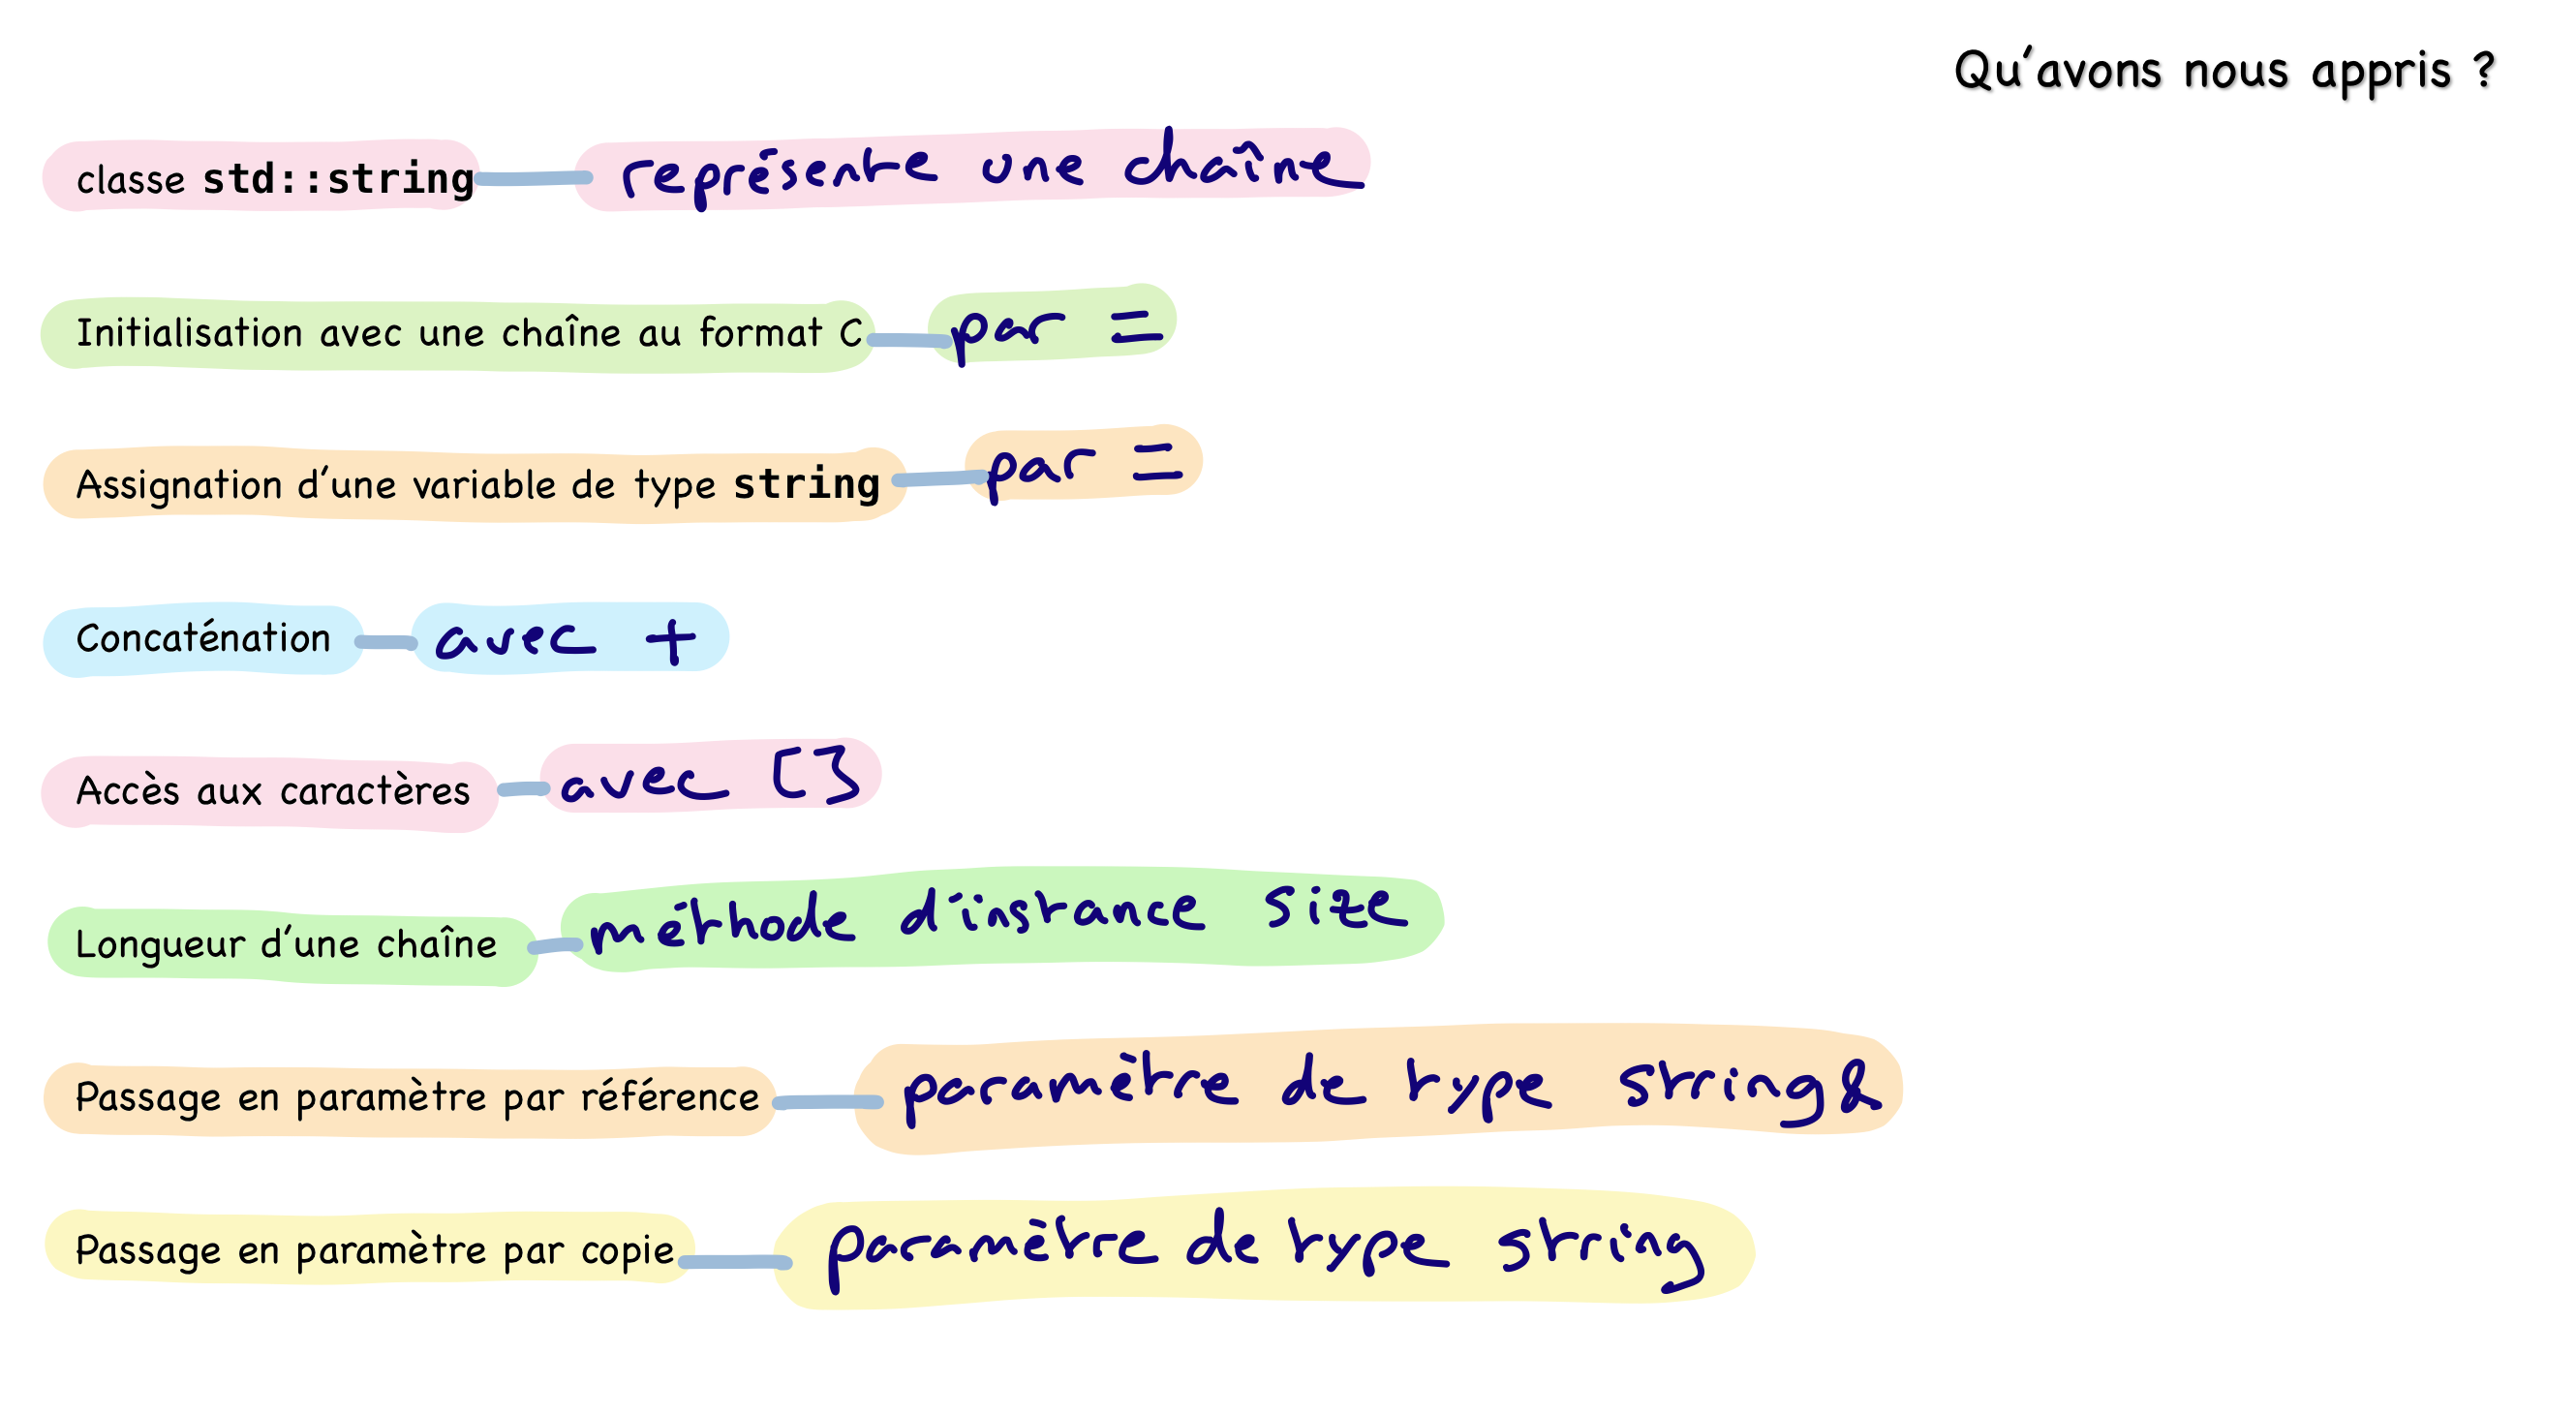 Qu'avons nous appris ?
classe std::string représente une chaîne
Initialisation avec une chaîne au format C par =
Assignation d'une variable de type string par =
Concaténation avec +
Accès aux caractères avec []
Longueur d'une chaîne méthode d'instance size
Passage en paramètre par référence paramètre de type string&
Passage en paramètre par copie paramètre de type string